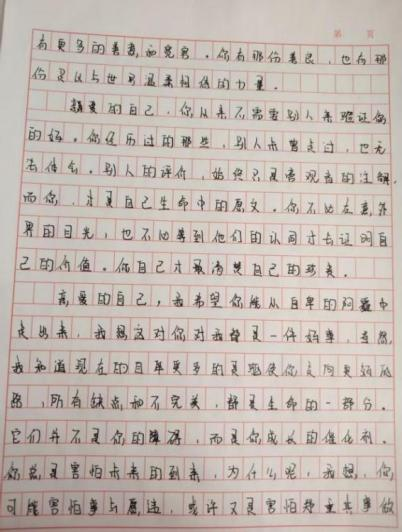 第 页
有更多的善意和宽容。你有那份善良，也有那
份足以与世界温柔相待的力量。
亲爱的自己，你从来不需要别人来验证你
的好。你经历过的那些，别人未曾走过，也无
法体会。别人的评价，始终只是旁观者的注解，
而你，才是自己生命中的原文。你不必在意外
界的目光，也不必等到他们的认同才去证明自
己的价值。你自己才最清楚自己的珍贵。
亲爱的自己，我希望你能从自卑的阴霾中
走出来，我想这对你对我都是一件好事，当然，
我知道现在的自卑更多的是驱使你走向更好的
路，所有缺点和不完美，都是生命的一部分。
它们并不是你的障碍，而是你成长的催化剂。
你总是害怕未来的到来，为什么呢，我想，你
可能害怕事与愿违，或许又是害怕郑重其事做